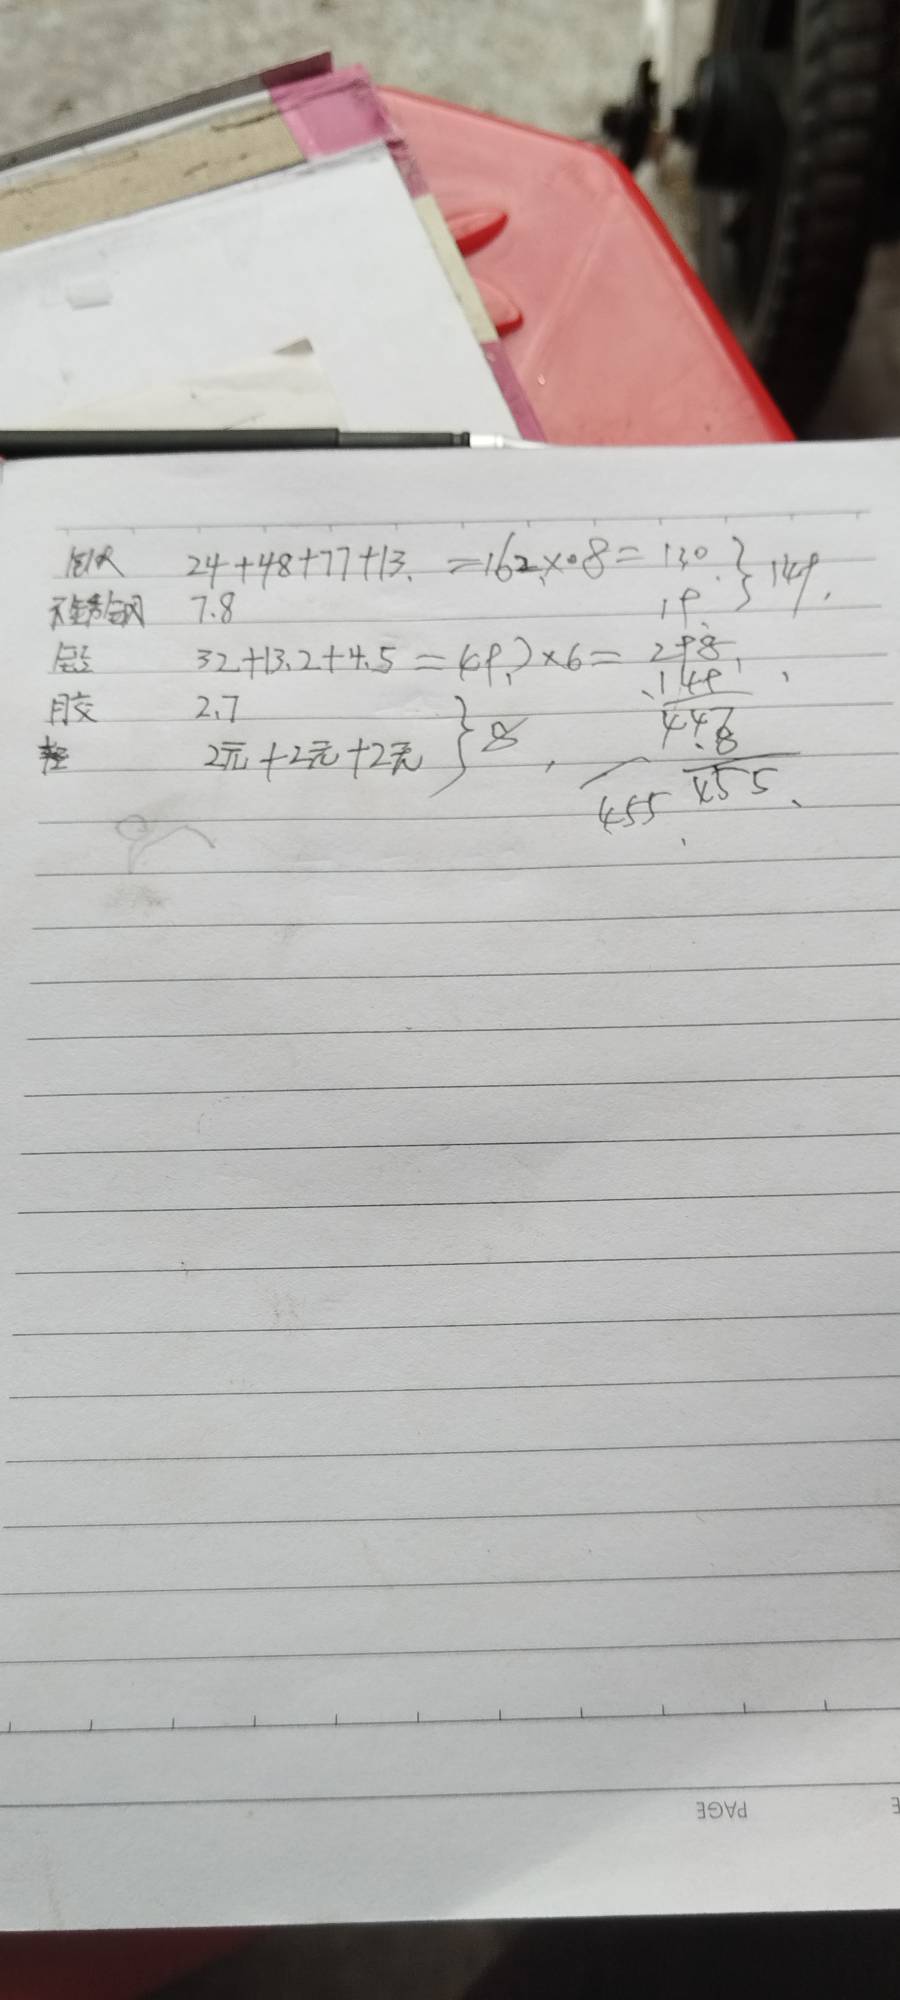 铁 24+48+77+13. =162×0.8=130 } 149.
不锈钢 7.8 19.
铝 32+13.2+4.5=49.)×6=298.
149
胶 2.7 } 8
447
2元+2元+2元
8
455 455
PAGE